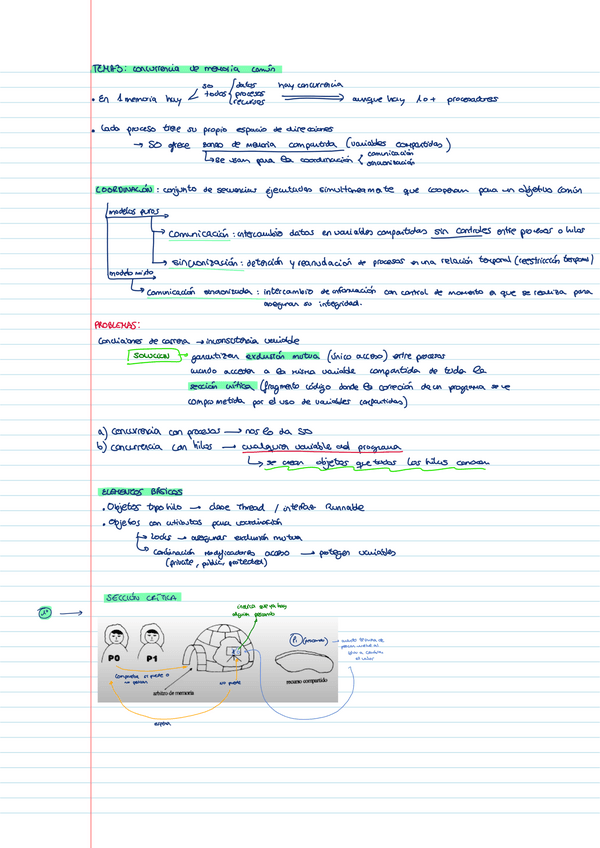 TEMA 3: concurrencia de memoria común
• En 1 memoria hay SO todos datos procesos recursos hay concurrencia aunque hay 1 o + procesadores
• Cada proceso tiene su propio espacio de direcciones
→ SO ofrece zonas de memoria compartida (variables compartidas)
→ se usan para la coordinación comunicación sincronización
COORDINACIÓN: conjunto de secuencias ejecutadas simultáneamente que cooperan para un objetivo común
modelos puros
→ comunicación: intercambio datos en variables compartidas sin controles entre procesos o hilos
→ sincronización: detención y reanudación de procesos en una relación temporal (restricción temporal)
modelo mixto
→ Comunicación sincronizada: intercambio de información con control de momento en que se realiza para
asegurar su integridad.
PROBLEMAS:
Condiciones de carrera → inconsistencia variable
SOLUCIÓN → garantizar exclusión mutua (único acceso) entre procesos
cuando acceden a la misma variable compartida de toda la
sección crítica (fragmento código donde la corrección de un programa se ve
comprometida por el uso de variables compartidas)
a) concurrencia con procesos → nos lo da SO
b) concurrencia con hilos → cualquier variable del programa
→ se crean objetos que todos los hilos conocen
ELEMENTOS BÁSICOS
• Objetos tipo hilo → clase Thread / interfaz Runnable
• Objetos con atributos para coordinación
→ locks → asegurar exclusión mutua
→ combinación modificadores acceso → protegen variables
(private, public, protected)
SECCIÓN CRÍTICA
1º →
alguien pescando
P0 P1
comprueba si puede o
no pescar
no puede
árbitro de memoria
recurso compartido
espera